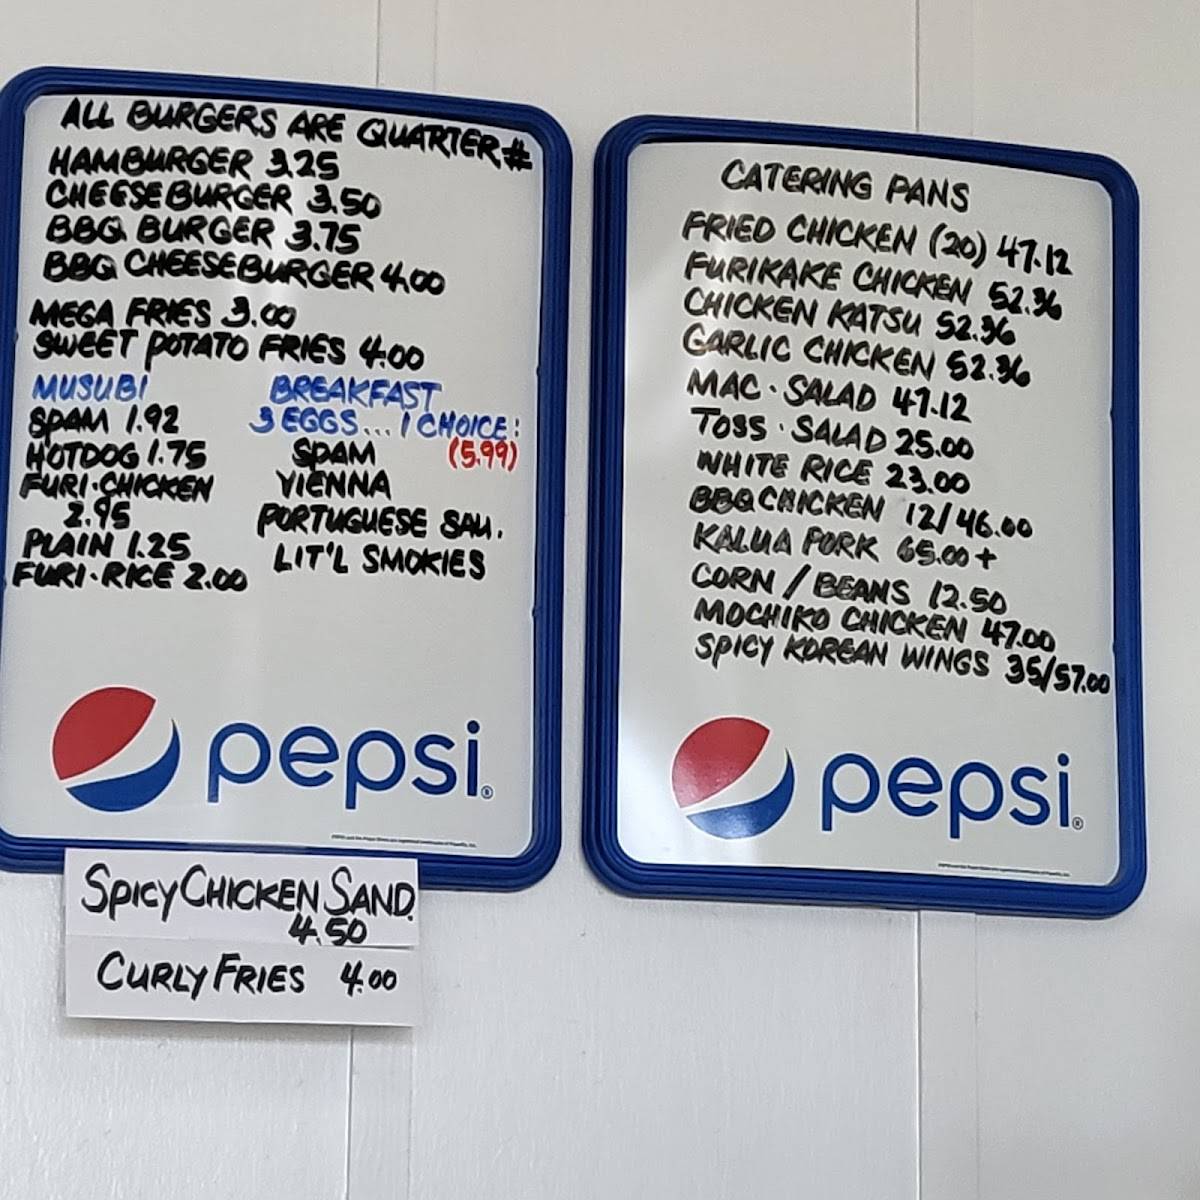 ALL BURGERS ARE QUARTER #
HAMBURGER 3.25
CHEESEBURGER 3.50
BBQ BURGER 3.75
BBQ CHEESEBURGER 4.00
MEGA FRIES 3.00
SWEET POTATO FRIES 4.00
MUSUBI
SPAM 1.92
HOTDOG 1.75
FURI-CHICKEN
2.95
PLAIN 1.25
FURI-RICE 2.00
BREAKFAST
3 EGGS... 1 CHOICE:
(5.99)
SPAM
VIENNA
PORTUGUESE SAU.
LIT'L SMOKIES
pepsi®
SPICY CHICKEN SAND.
4.50
CURLY FRIES 4.00
CATERING PANS
FRIED CHICKEN (20) 47.12
FURIKAKE CHICKEN 52.36
CHICKEN KATSU 52.36
GARLIC CHICKEN 52.36
MAC · SALAD 47.12
TOSS · SALAD 25.00
WHITE RICE 23.00
BBQ CHICKEN 12/46.00
KALUA PORK 65.00+
CORN / BEANS 12.50
MOCHIKO CHICKEN 47.00
SPICY KOREAN WINGS 35/57.00
pepsi®